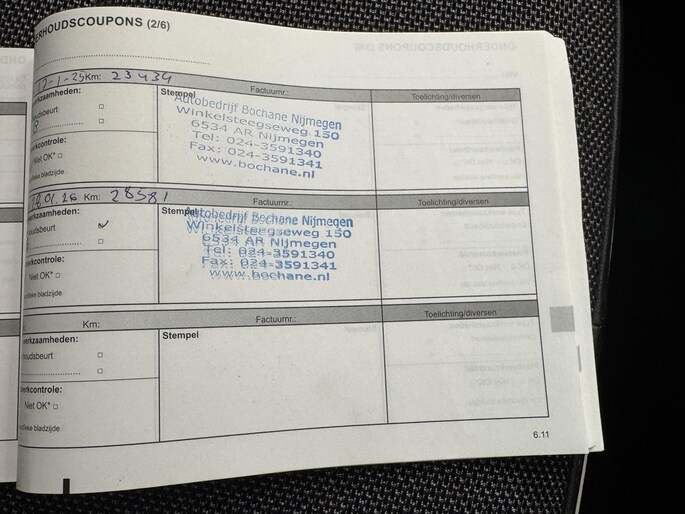 ERHOUDSCOUPONS (2/6)
Km: 23434 Factuurnr.: Toelichting/diversen
rkzaamheden: Stempel
oudsbeurt
Autobedrijf Bochane Nijmegen
Winkelsteegseweg 150
6534 AR Nijmegen
Tel: 024-3591340
Fax: 024-3591341
www.bochane.nl
erkcontrole:
Niet OK*
bladzijde
Km: 28581 Factuurnr.: Toelichting/diversen
rkzaamheden: Stempel
oudsbeurt
Autobedrijf Bochane Nijmegen
Winkelsteegseweg 150
6534 AR Nijmegen
Tel: 024-3591340
Fax: 024-3591341
www.bochane.nl
erkcontrole:
Niet OK*
bladzijde
Km: Factuurnr.: Toelichting/diversen
erkzaamheden: Stempel
oudsbeurt
erkcontrole:
Niet OK*
bladzijde
6.11